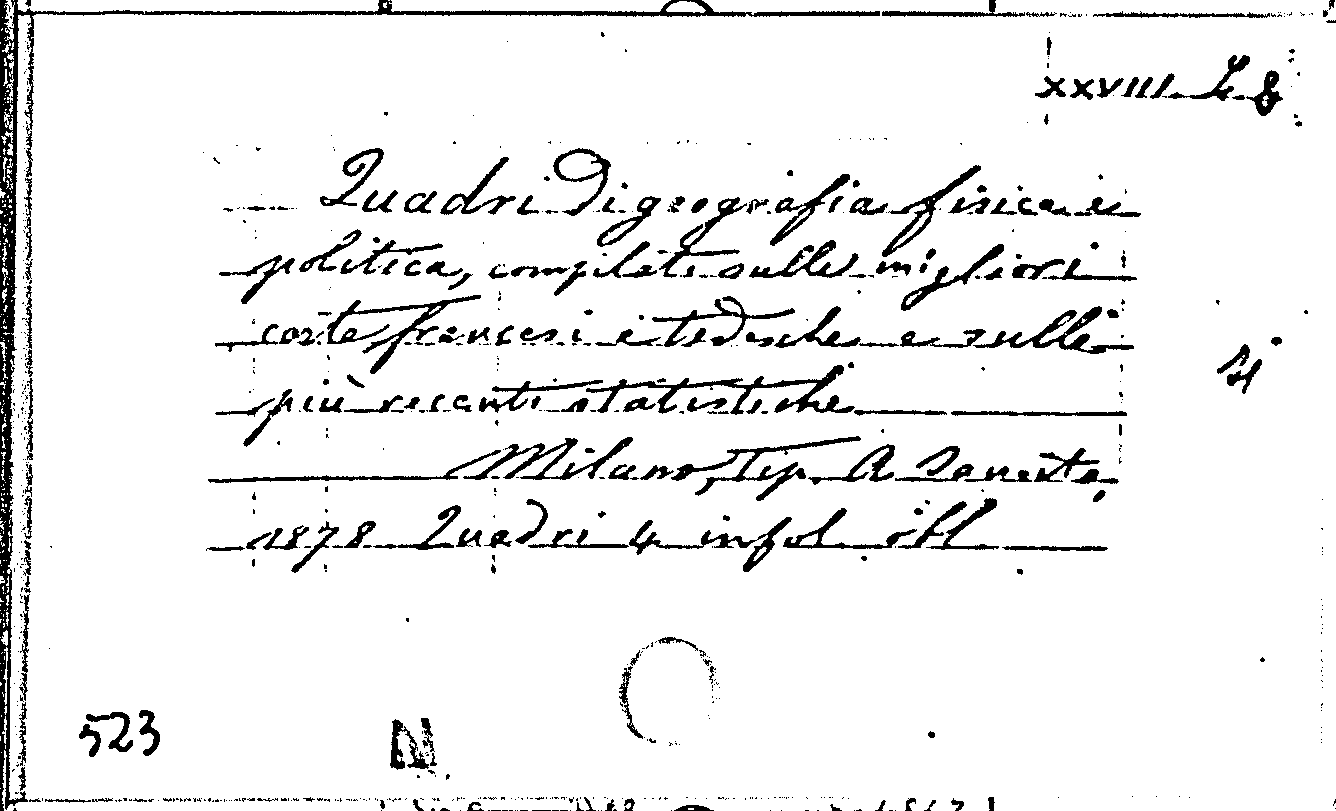 XXVIII. L. 8
Quadri di geografia fisica e
politica, compilati sulle migliori
carte francesi e tedesche e sulle
più recenti statistiche
Milano, Tip. A
1878 Quadri 4 in fol. obl.
523
N